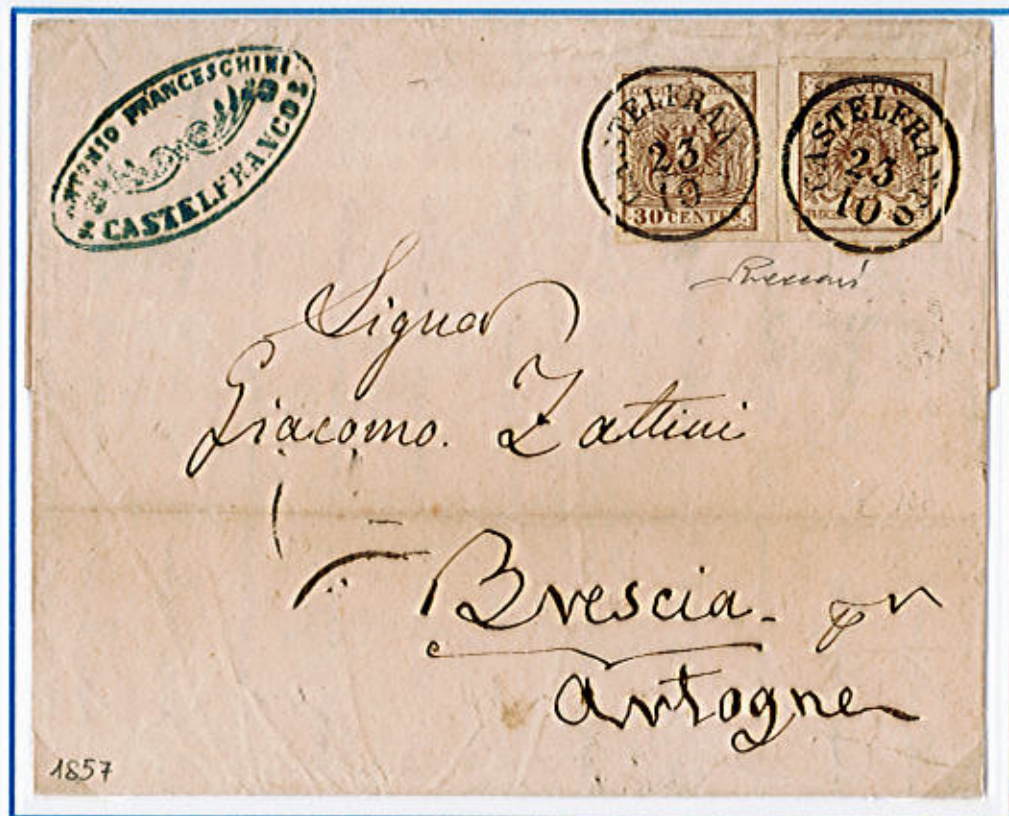 ANTONIO FRANCESCHINI
CASTELFRANCO
CASTELFRANCO
23
10
30 CENTES.
CASTELFRANCO
23
10
Signor
Giacomo. Zattini
Brescia. pr
Artogne
1857